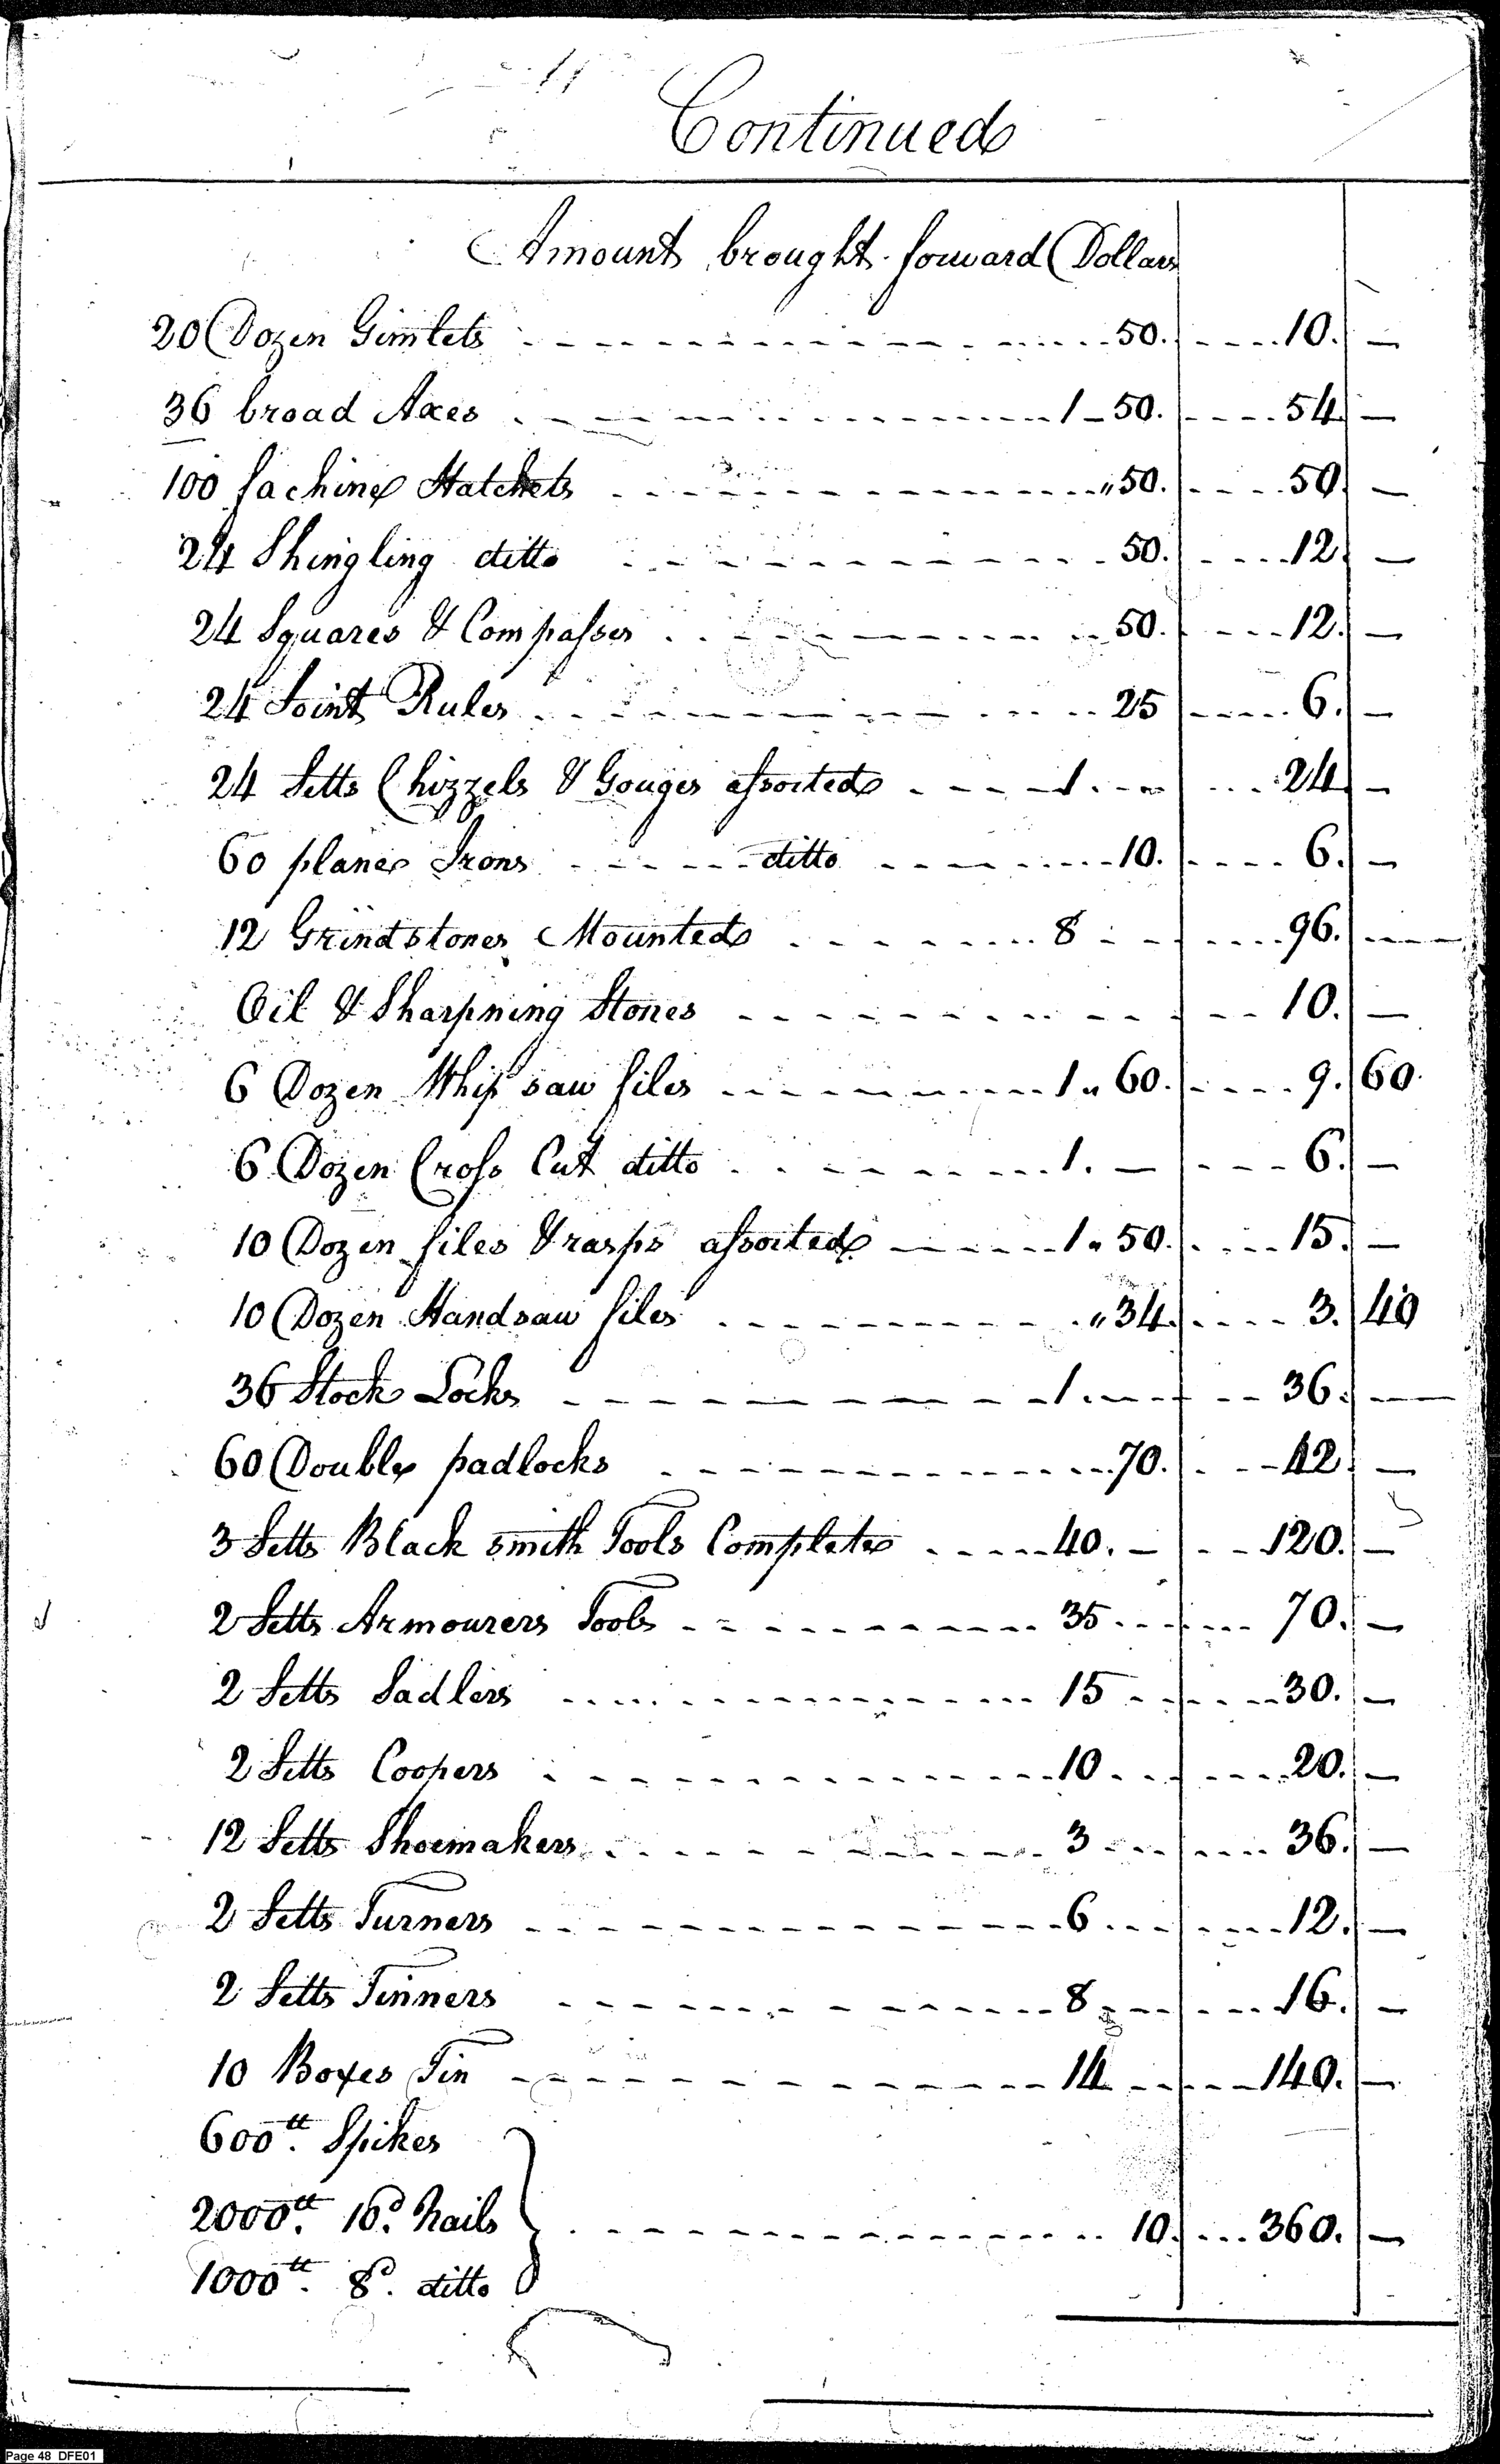 Continued
Amount brought forward Dollars
20 Dozen Gimlets 50. 10. —
36 broad Axes 1 - 50. 54. —
100 fachine Hatchets " 50. 50. —
24 Shingling ditto 50. 12. —
24 Squares & Compasses 50. 12. —
24 Joint Rules 25 6. —
24 Setts Chizzels & Gouges assorted 1. — 24 —
60 plane Irons ditto 10. 6. —
12 Grindstones Mounted 8 96. —
Oil & Sharpning Stones 10. —
6 Dozen Whip saw files 1 " 60. 9. 60.
6 Dozen Cross Cut ditto 1. — 6. —
10 Dozen files & rasps assorted 1 " 50. 15. —
10 Dozen Handsaw files " 34. 3. 40
36 Stock Locks 1. — 36. —
60 Double padlocks 70. 42. —
3 Setts Black smith Tools Complete 40. — 120. —
2 Setts Armourers Tools 35 70. —
2 Setts Sadlers 15 30. —
2 Setts Coopers 10 20. —
12 Setts Shoemakers 3 36. —
2 Setts Turners 6 12. —
2 Setts Tinners 8 16. —
10 Boxes Tin 14 140. —
600tt. Spikes
2000tt. 10d. Nails 10. 360. —
1000tt. 8d. ditto
Page 48 DFE01